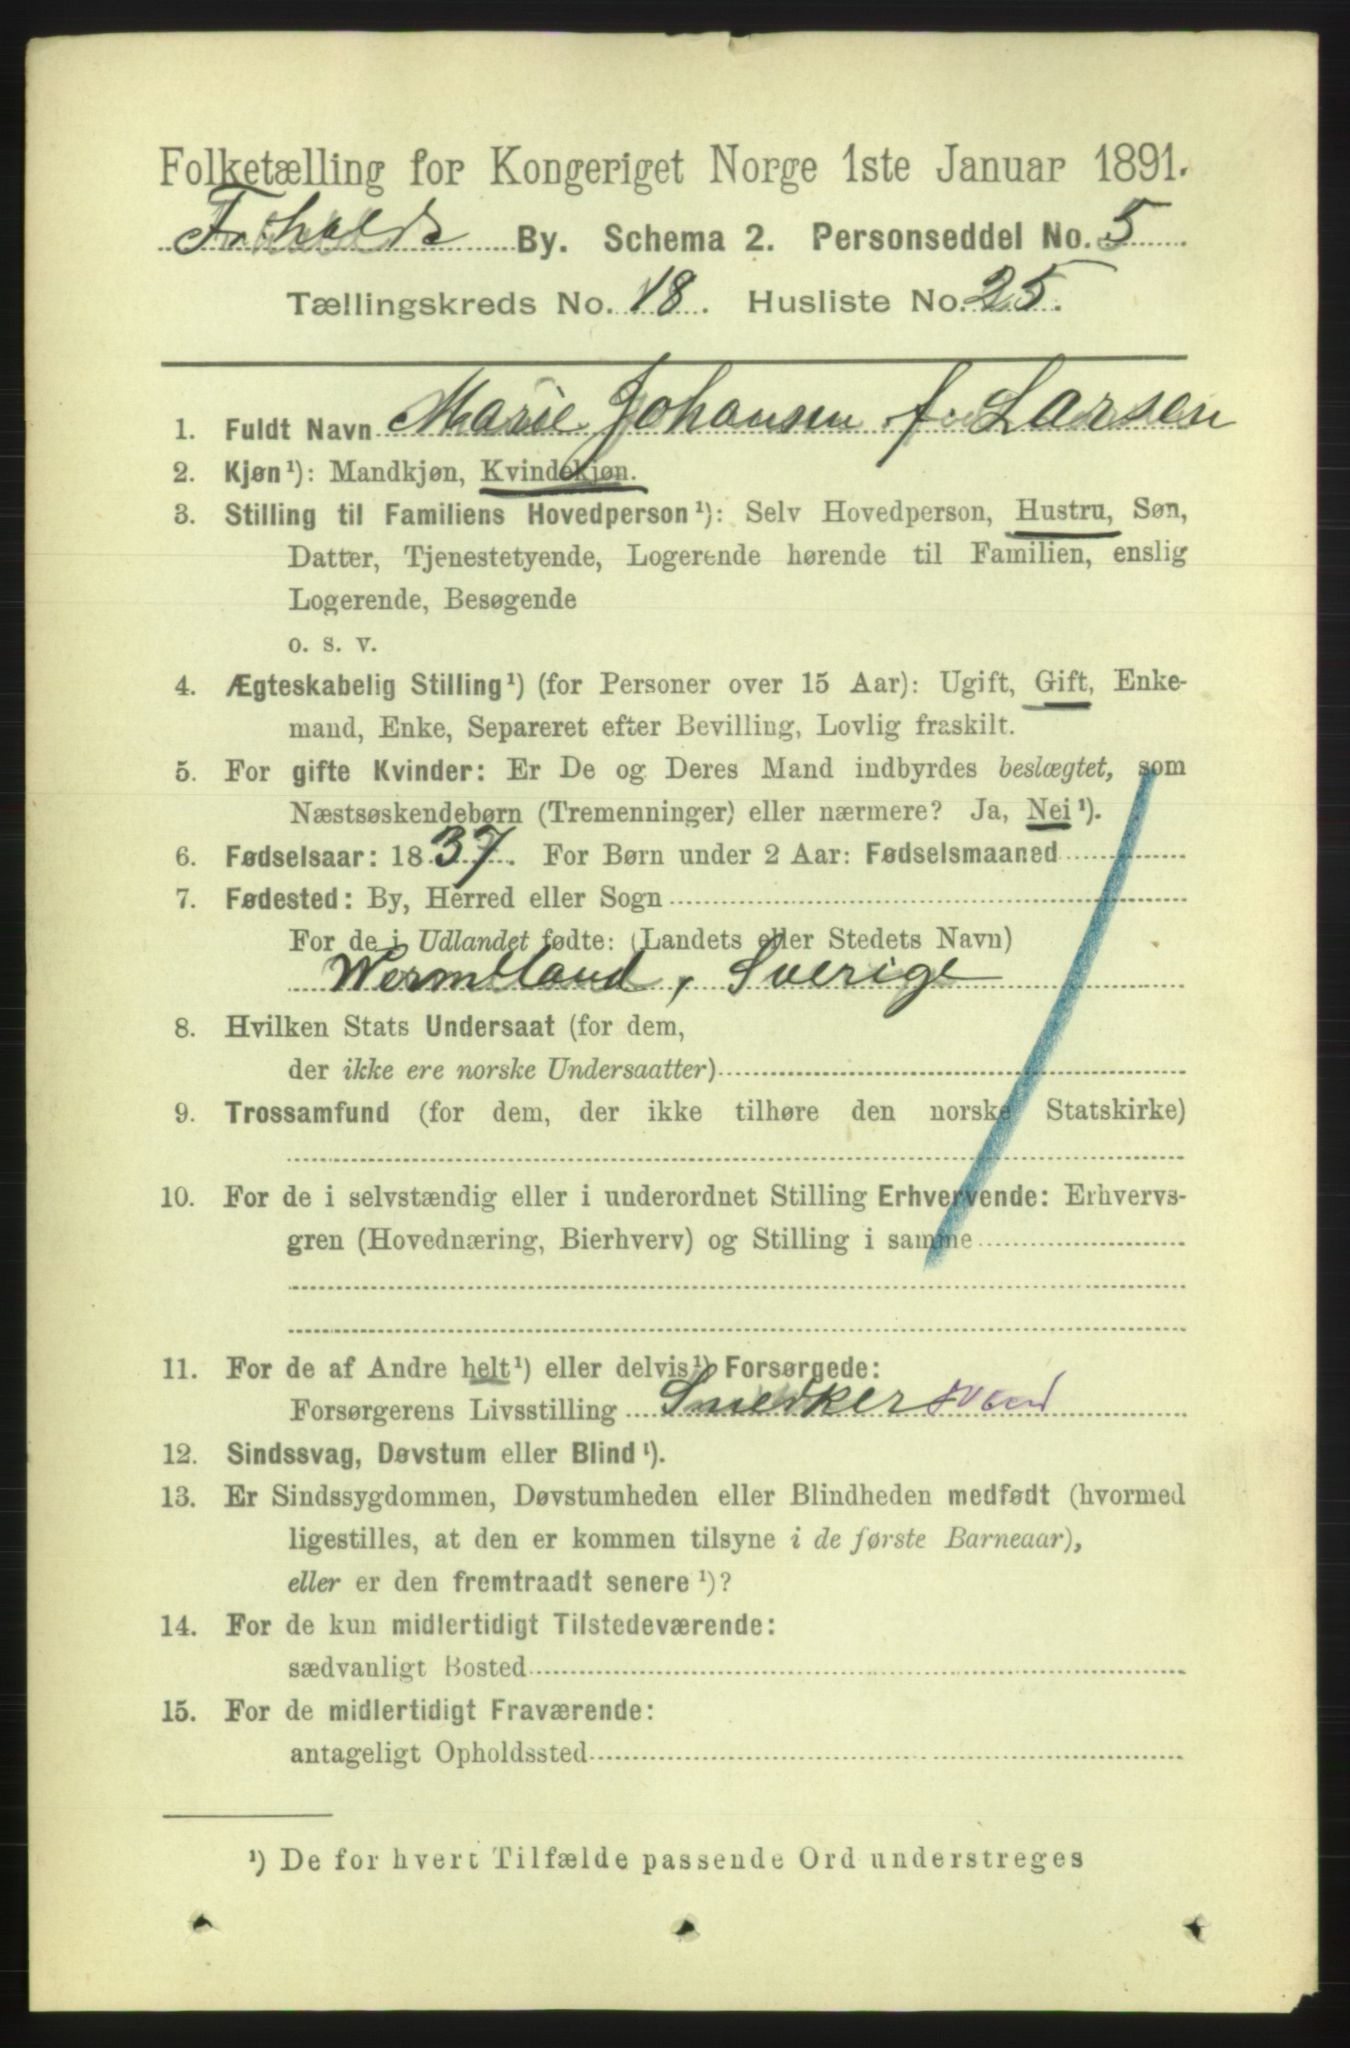 Folketælling for Kongeriget Norge 1ste Januar 1891.
Fr.halds By. Schema 2. Personseddel No. 5
Tællingskreds No. 18. Husliste No. 25.
1. Fuldt Navn Marie Johansen f. Larsen
2. Kjøn¹): Mandkjøn, Kvindekjøn.
3. Stilling til Familiens Hovedperson¹): Selv Hovedperson, Hustru, Søn,
Datter, Tjenestetyende, Logerende hørende til Familien, enslig
Logerende, Besøgende
o. s. v.
4. Ægteskabelig Stilling¹) (for Personer over 15 Aar): Ugift, Gift, Enke-
mand, Enke, Separeret efter Bevilling, Lovlig fraskilt.
5. For gifte Kvinder: Er De og Deres Mand indbyrdes beslægtet, som
Næstsøskendebørn (Tremenninger) eller nærmere? Ja, Nei¹).
6. Fødselsaar: 1837. For Børn under 2 Aar: Fødselsmaaned
7. Fødested: By, Herred eller Sogn
For de i Udlandet fødte: (Landets eller Stedets Navn)
Wermeland, Sverige
8. Hvilken Stats Undersaat (for dem,
der ikke ere norske Undersaatter)
9. Trossamfund (for dem, der ikke tilhøre den norske Statskirke)
10. For de i selvstændig eller i underordnet Stilling Erhvervende: Erhvervs-
gren (Hovednæring, Bierhverv) og Stilling i samme
11. For de af Andre helt¹) eller delvis¹) Forsørgede:
Forsørgerens Livsstilling Snedker svend
12. Sindssvag, Døvstum eller Blind¹).
13. Er Sindssygdommen, Døvstumheden eller Blindheden medfødt (hvormed
ligestilles, at den er kommen tilsyne i de første Barneaar),
eller er den fremtraadt senere¹)?
14. For de kun midlertidigt Tilstedeværende:
sædvanligt Bosted
15. For de midlertidigt Fraværende:
antageligt Opholdssted
¹) De for hvert Tilfælde passende Ord understreges